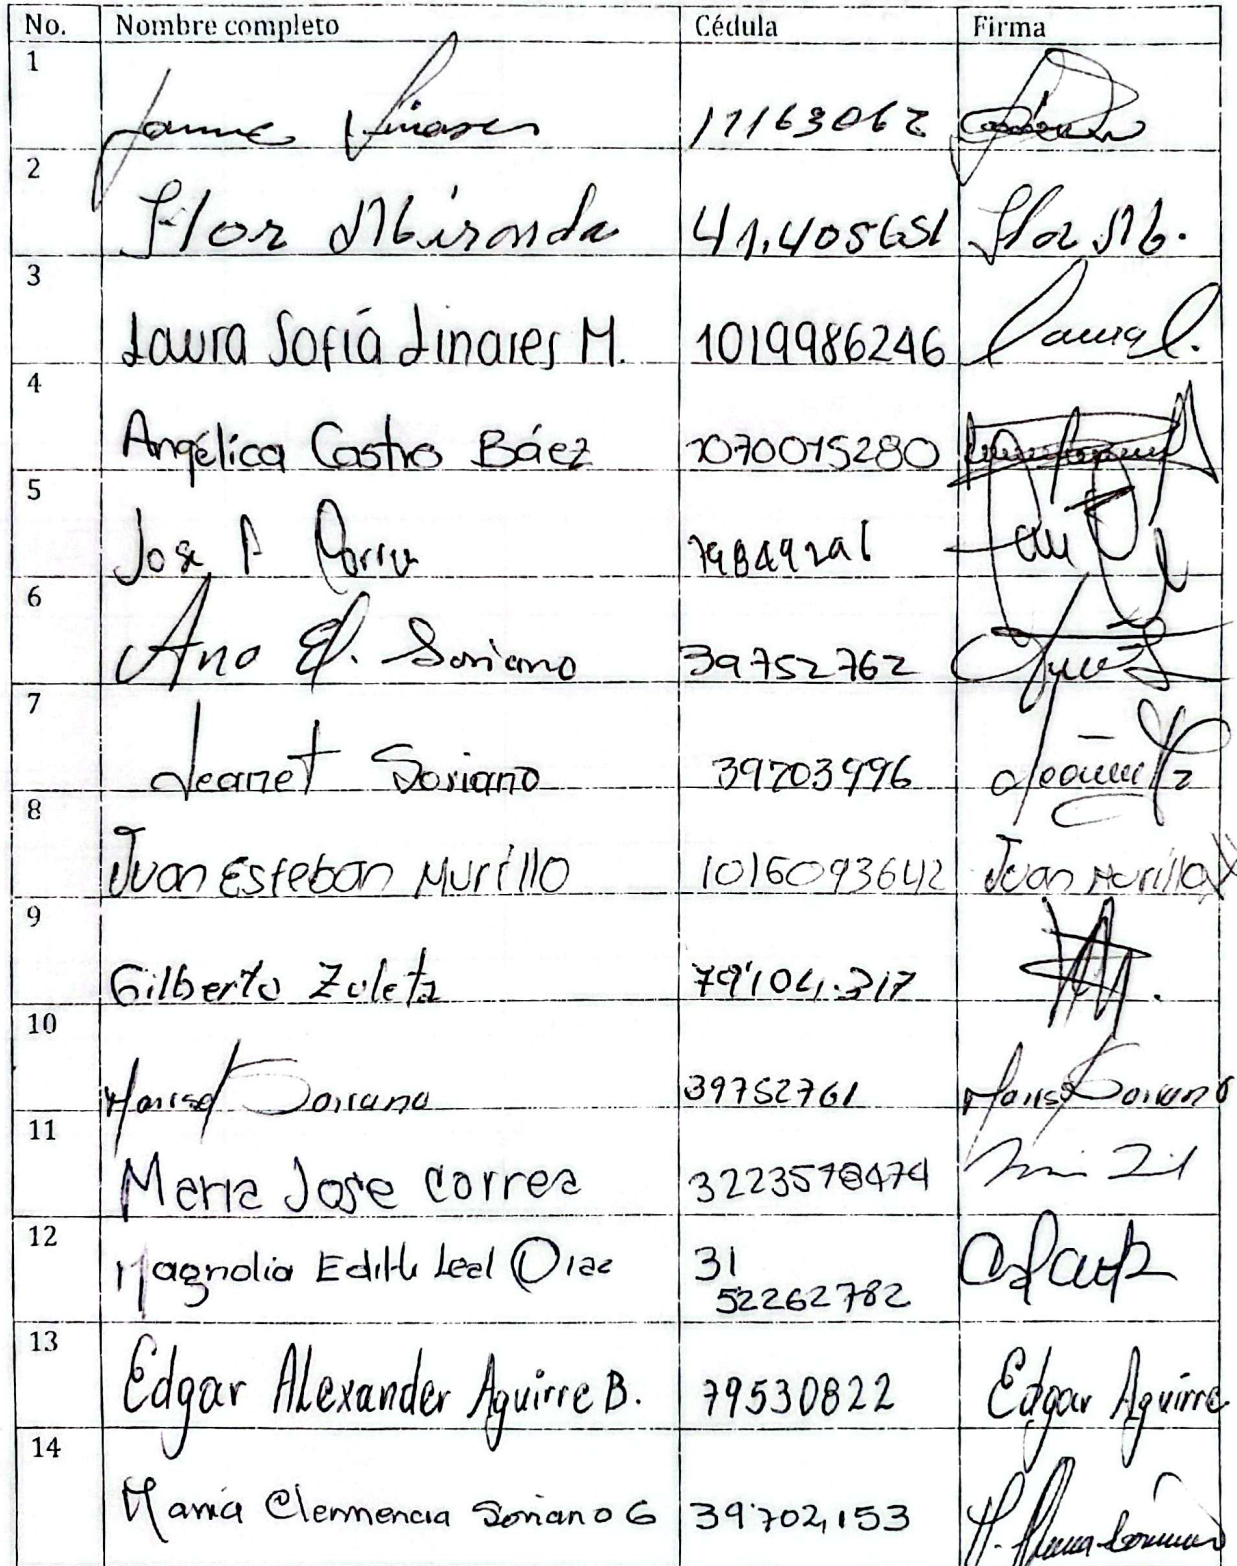 No. Nombre completo Cédula Firma
1 Jaime Linares 17163062
2 Flor Miranda 41.405651 Flor M.
3 Laura Sofía Linares M. 1019986246 Laura L.
4 Angélica Castro Báez 1070015280
5 Jose 79849291
6 Ana E. Soriano 39752762
7 Jeanet Soriano 39703996
8 Juan Esteban Murillo 1016093642 Juan Murillo
9 Gilberto Zuleta 79'104.317
10 Marisol Soriano 39752761 Marisol Soriano
11 Maria Jose Correa 3223578474
12 Magnolia Edith Leal Diaz 31
52262782
13 Edgar Alexander Aguirre B. 79530822 Edgar Aguirre
14 Maria Clemencia Soriano G 39'702,153